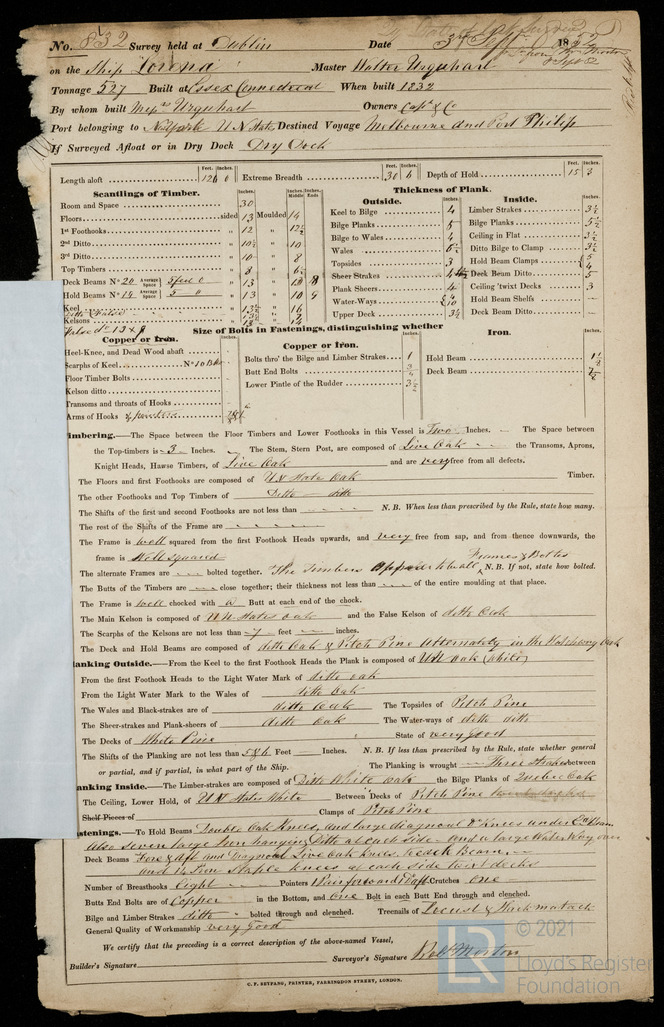 No. 832 Survey held at Dublin Date 3rd Sept. 1852
on the Ship Lorena Master Walter Urquhart
Tonnage 527 Built at Essex Connecticut When built 1832
By whom built Urquhart Owners Capt & Co
Port belonging to New York U N States Destined Voyage Melbourne and Port Philip
If Surveyed Afloat or in Dry Dock Dry Dock
Feet. Inches. Feet. Inches. Feet. Inches.
Length aloft 126 0 Extreme Breadth 30 6 Depth of Hold 15 3
Scantlings of Timber.
Inches. Inches Middle Inches Ends
Room and Space 30
Floors sided 13 Moulded 14
1st Foothooks " 12 " 12½
2nd Ditto " 10½ " 10
3rd Ditto " 10 " 8
Top Timbers " 8 " 6½
Deck Beams No. 20 Average Space 5 feet 0 " 13
Hold Beams No. 14 Average Space 5 0 " 13 10 9
Keel
Kelsons
Thickness of Plank.
Outside. Inches.
Keel to Bilge 4
Bilge Planks 5
Bilge to Wales 4
Wales
Topsides 3
Sheer Strakes
Plank Sheers 4
Water-Ways
Upper Deck 3½
Inside. Inches.
Limber Strakes 3½
Bilge Planks 5½
Ceiling in Flat 3½
Ditto Bilge to Clamp 3½
Hold Beam Clamps
Deck Beam Ditto 5
Ceiling 'twixt Decks 3
Hold Beam Shelfs
Deck Beam Ditto
Size of Bolts in Fastenings, distinguishing whether
Copper or Iron.
Heel-Knee, and Dead Wood abaft
Scarphs of Keel No.
Floor Timber Bolts
Kelson ditto
Transoms and throats of Hooks
Arms of Hooks
Copper or Iron.
Bolts thro' the Bilge and Limber Strakes 1
Butt End Bolts
Lower Pintle of the Rudder 3½
Iron.
Hold Beam
Deck Beam
imbering.—The Space between the Floor Timbers and Lower Foothooks in this Vessel is Two Inches. The Space between
the Top-timbers is 3 Inches. The Stem, Stern Post, are composed of Live Oak the Transoms, Aprons,
Knight Heads, Hawse Timbers, of Live Oak and are very free from all defects.
The Floors and first Foothooks are composed of U N State Oak Timber,
The other Foothooks and Top Timbers of Ditto ditto
The Shifts of the first and second Foothooks are not less than N. B. When less than prescribed by the Rule, state how many.
The rest of the Shifts of the Frame are
The Frame is well squared from the first Foothook Heads upwards, and very free from sap, and from thence downwards, the
frame is Well squared
The alternate Frames are bolted together. The Timbers N. B. If not, state how bolted.
The Butts of the Timbers are close together; their thickness not less than of the entire moulding at that place.
The Frame is well chocked with a Butt at each end of the chock.
The Main Kelson is composed of U N States oak and the False Kelson of ditto Oak
The Scarphs of the Kelsons are not less than 7 feet inches.
The Deck and Hold Beams are composed of ditto Oak & Pitch Pine alternately in the
lanking Outside.—From the Keel to the first Foothook Heads the Plank is composed of U N oak (white)
From the first Foothook Heads to the Light Water Mark of ditto oak
From the Light Water Mark to the Wales of ditto Oak
The Wales and Black-strakes are of ditto Oak The Topsides of Pitch Pine
The Sheer-strakes and Plank-sheers of ditto Oak The Water-ways of ditto ditto
The Decks of White Pine State of very good
The Shifts of the Planking are not less than 5 & 6 Feet Inches. N. B. If less than prescribed by the Rule, state whether general
or partial, and if partial, in what part of the Ship. The Planking is wrought Three Strakes between
anking Inside.—The Limber-strakes are composed of Ditto White oak the Bilge Planks of Quebec Oak
The Ceiling, Lower Hold, of U N States White Between Decks of Pitch Pine
Shelf Pieces of Clamps of Pitch Pine
astenings.—To Hold Beams Double Oak Knees, and large diagonal Do. Knees under Beam
also Seven large Iron hanging Ditto at each side and a large Water Way over
Deck Beams Fore & aft and Diagonal Live Oak Knees to each Beam
and Iron Staple Knees at each side twixt decks
Number of Breasthooks Eight Pointers Crutches one
Butts End Bolts are of Copper in the Bottom, and One Bolt in each Butt End through and clenched.
Bilge and Limber Strakes ditto bolted through and clenched. Treenails of Locust & Hackmatack
General Quality of Workmanship very good
We certify that the preceding is a correct description of the above-named Vessel,
Builder's Signature Surveyor's Signature Robt Morton
C. F. SEYFANG, PRINTER, FARRINGDON STREET, LONDON.
© 2021
Lloyd's Register
Foundation